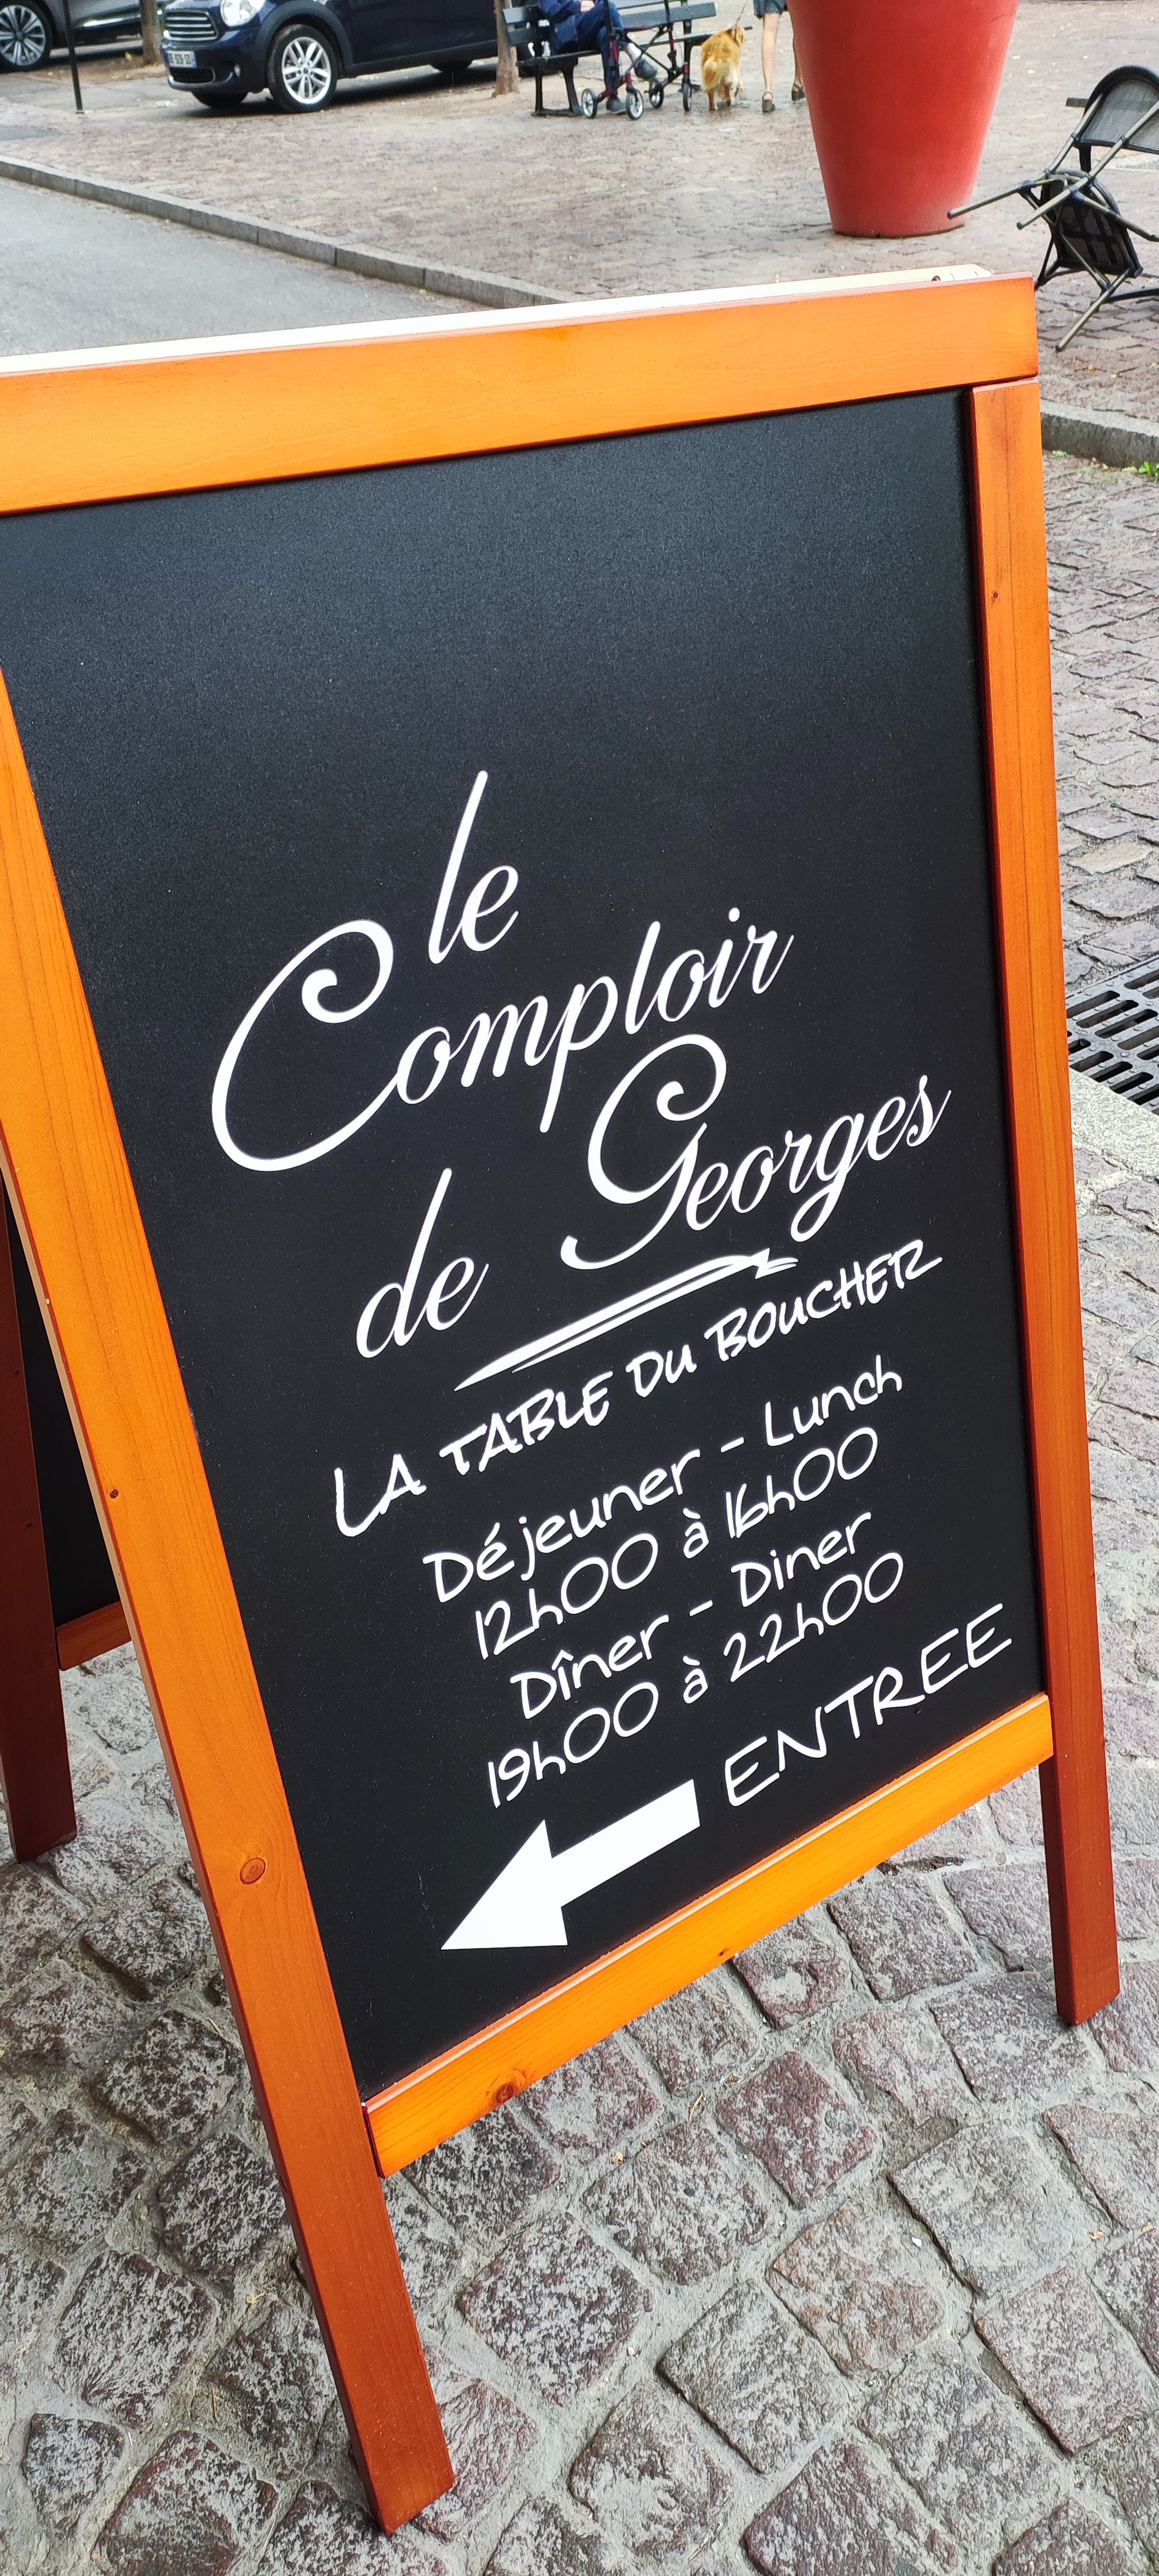 le
Comploir
de Georges
LA TABLE DU BOUCHER
Déjeuner - Lunch
12h00 à 16h00
Dîner - Diner
19h00 à 22h00
ENTREE